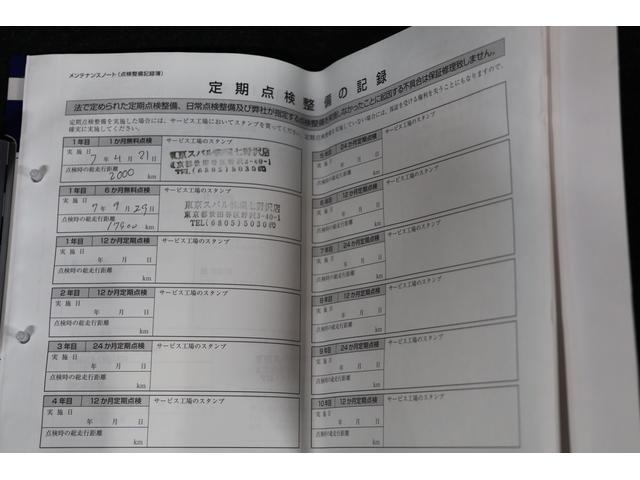 メンテナンスノート(点検整備記録簿)
定期点検整備の記録
法で定められた定期点検整備、日常点検整備及び弊社が指定する点検整備を実施しなかったことに起因する不具合は保証修理致しません。
定期点検整備を実施した場合には、サービス工場においてスタンプを貰ってください。
確実に実施してください。
1年目 1か月無料点検 サービス工場のスタンプ
実施日
7年4月21日
点検時の総走行距離
2000 km
TEL(6805)5030
1年目 6か月無料点検 サービス工場のスタンプ
実施日
7年9月29日
点検時の総走行距離
17900 km
東京スバル
東京都世田谷区野沢3-40-1
TEL(6805)5030
1年目 12か月定期点検 サービス工場のスタンプ
実施日
年 月 日
点検時の総走行距離
km
2年目 12か月定期点検 サービス工場のスタンプ
実施日
年 月 日
点検時の総走行距離
km
3年目 24か月定期点検 サービス工場のスタンプ
実施日
年 月 日
点検時の総走行距離
km
4年目 12か月定期点検 サービス工場のスタンプ
実施日
年 月 日
点検時の総走行距離
km
5年目 24か月定期点検 サービス工場のスタンプ
実施日
年 月 日
点検時の総走行距離
km
6年目 12か月定期点検 サービス工場のスタンプ
実施日
年 月 日
点検時の総走行距離
km
7年目 24か月定期点検 サービス工場のスタンプ
実施日
年 月 日
点検時の総走行距離
km
8年目 12か月定期点検 サービス工場のスタンプ
実施日
年 月 日
点検時の総走行距離
km
9年目 24か月定期点検 サービス工場のスタンプ
実施日
年 月 日
点検時の総走行距離
km
10年目 12か月定期点検 サービス工場のスタンプ
実施日
年 月 日
点検時の総走行距離
km